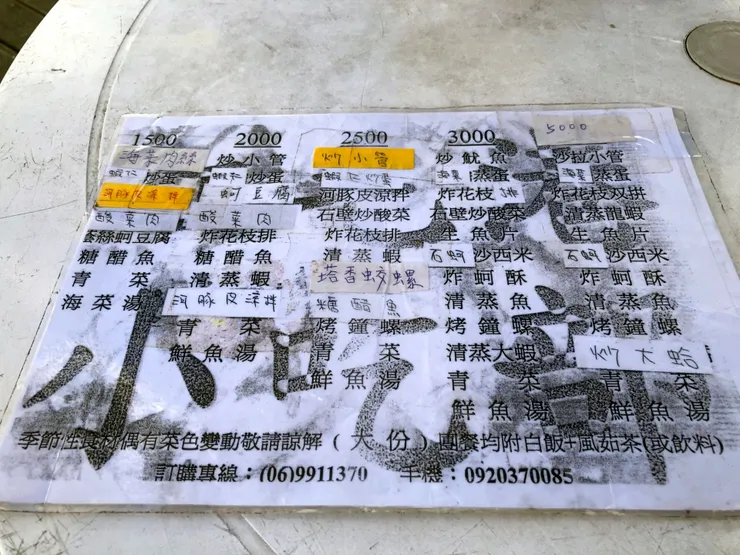 1500 2000 2500 3000 5000
海菜肉絲 炒小管 炒小管 炒魷魚 沙拉小管
蝦仁炒蛋 蝦仁蒸蛋 蝦仁炒蛋 海菜蒸蛋 海菜蒸蛋
河豚皮涼拌 蚵豆腐 河豚皮涼拌 炸花枝排 炸花枝双拼
酸菜肉 酸菜肉 石壁炒酸菜 石壁炒酸菜 清蒸龍蝦
絲蚵豆腐 炸花枝排 炸花枝排 生魚片 生魚片
糖醋魚 糖醋魚 清蒸蝦 石蚵沙西米 石蚵沙西米
青菜 清蒸蝦 塔香蛟螺 炸蚵酥 炸蚵酥
海菜湯 河豚皮涼拌 糖醋魚 清蒸魚 清蒸魚
青菜 烤鐘螺 烤鐘螺 烤鐘螺
鮮魚湯 青菜 清蒸大蝦 炒大蛤
鮮魚湯 青菜 青菜
鮮魚湯 鮮魚湯
小吃部
季節性食材偶有菜色變動敬請諒解(大份)團餐均附白飯+風茹茶(或飲料)
訂購專線:(06)9911370 手機:0920370085